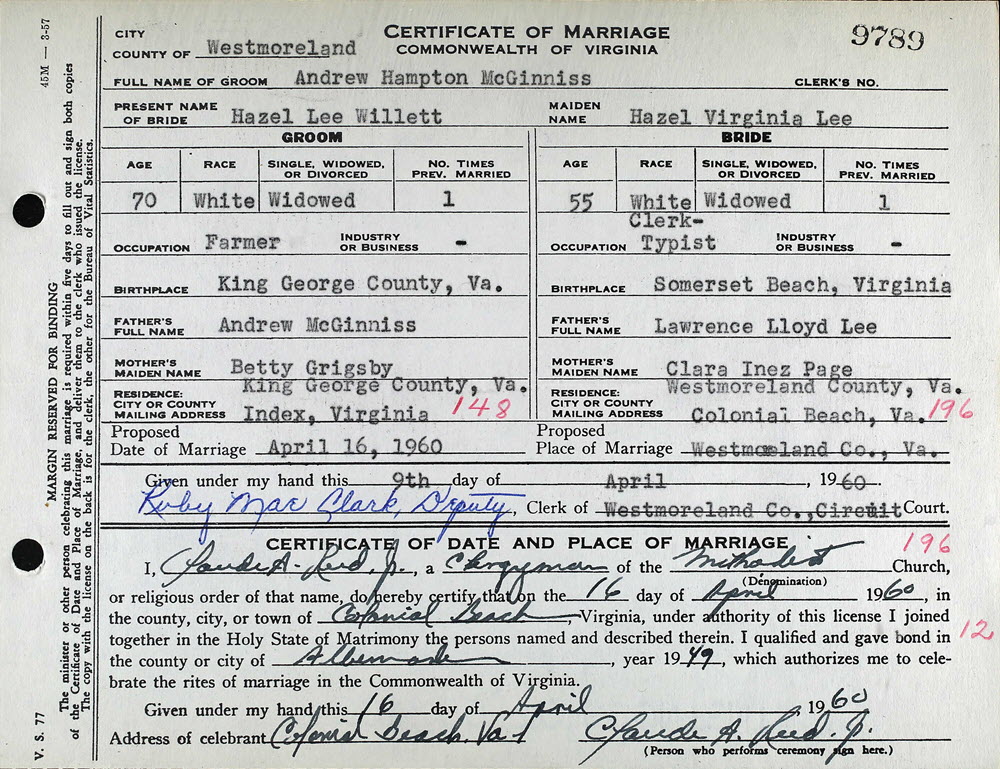 CITY
COUNTY OF Westmoreland
CERTIFICATE OF MARRIAGE
COMMONWEALTH OF VIRGINIA
9789
FULL NAME OF GROOM Andrew Hampton McGinniss CLERK'S NO.
PRESENT NAME OF BRIDE Hazel Lee Willett MAIDEN NAME Hazel Virginia Lee
GROOM BRIDE
AGE RACE SINGLE, WIDOWED, OR DIVORCED NO. TIMES PREV. MARRIED AGE RACE SINGLE, WIDOWED, OR DIVORCED NO. TIMES PREV. MARRIED
70 White Widowed 1 55 White Widowed 1
OCCUPATION Farmer INDUSTRY OR BUSINESS - OCCUPATION Clerk-Typist INDUSTRY OR BUSINESS -
BIRTHPLACE King George County, Va. BIRTHPLACE Somerset Beach, Virginia
FATHER'S FULL NAME Andrew McGinniss FATHER'S FULL NAME Lawrence Lloyd Lee
MOTHER'S MAIDEN NAME Betty Grigsby MOTHER'S MAIDEN NAME Clara Inez Page
RESIDENCE: CITY OR COUNTY King George County, Va. RESIDENCE: CITY OR COUNTY Westmoreland County, Va.
MAILING ADDRESS Index, Virginia 148 MAILING ADDRESS Colonial Beach, Va. 196
Proposed Date of Marriage April 16, 1960 Proposed Place of Marriage Westmoreland Co., Va.
Given under my hand this 9th day of April, 1960.
Ruby Mae Clark, Deputy, Clerk of Westmoreland Co., Circuit Court.
CERTIFICATE OF DATE AND PLACE OF MARRIAGE 196
I, Claude A. Reed, Jr., a Clergyman of the Methodist Church,
(Denomination)
or religious order of that name, do hereby certify that on the 16 day of April 1960, in
the county, city, or town of Colonial Beach, Virginia, under authority of this license I joined
together in the Holy State of Matrimony the persons named and described therein. I qualified and gave bond in 12
the county or city of Albemarle, year 1949, which authorizes me to cele-
brate the rites of marriage in the Commonwealth of Virginia.
Given under my hand this 16 day of April, 1960
Address of celebrant Colonial Beach, Va. Claude A. Reed, Jr.
(Person who performs ceremony sign here.)
45M — 3-57
MARGIN RESERVED FOR BINDING
The minister or other person celebrating this marriage is required within five days to fill out and sign both copies
of the Certificate of Date and Place of Marriage, and deliver them to the clerk who issued the license.
The copy with the license on the back is for the clerk, the other for the Bureau of Vital Statistics.
V. S. 77